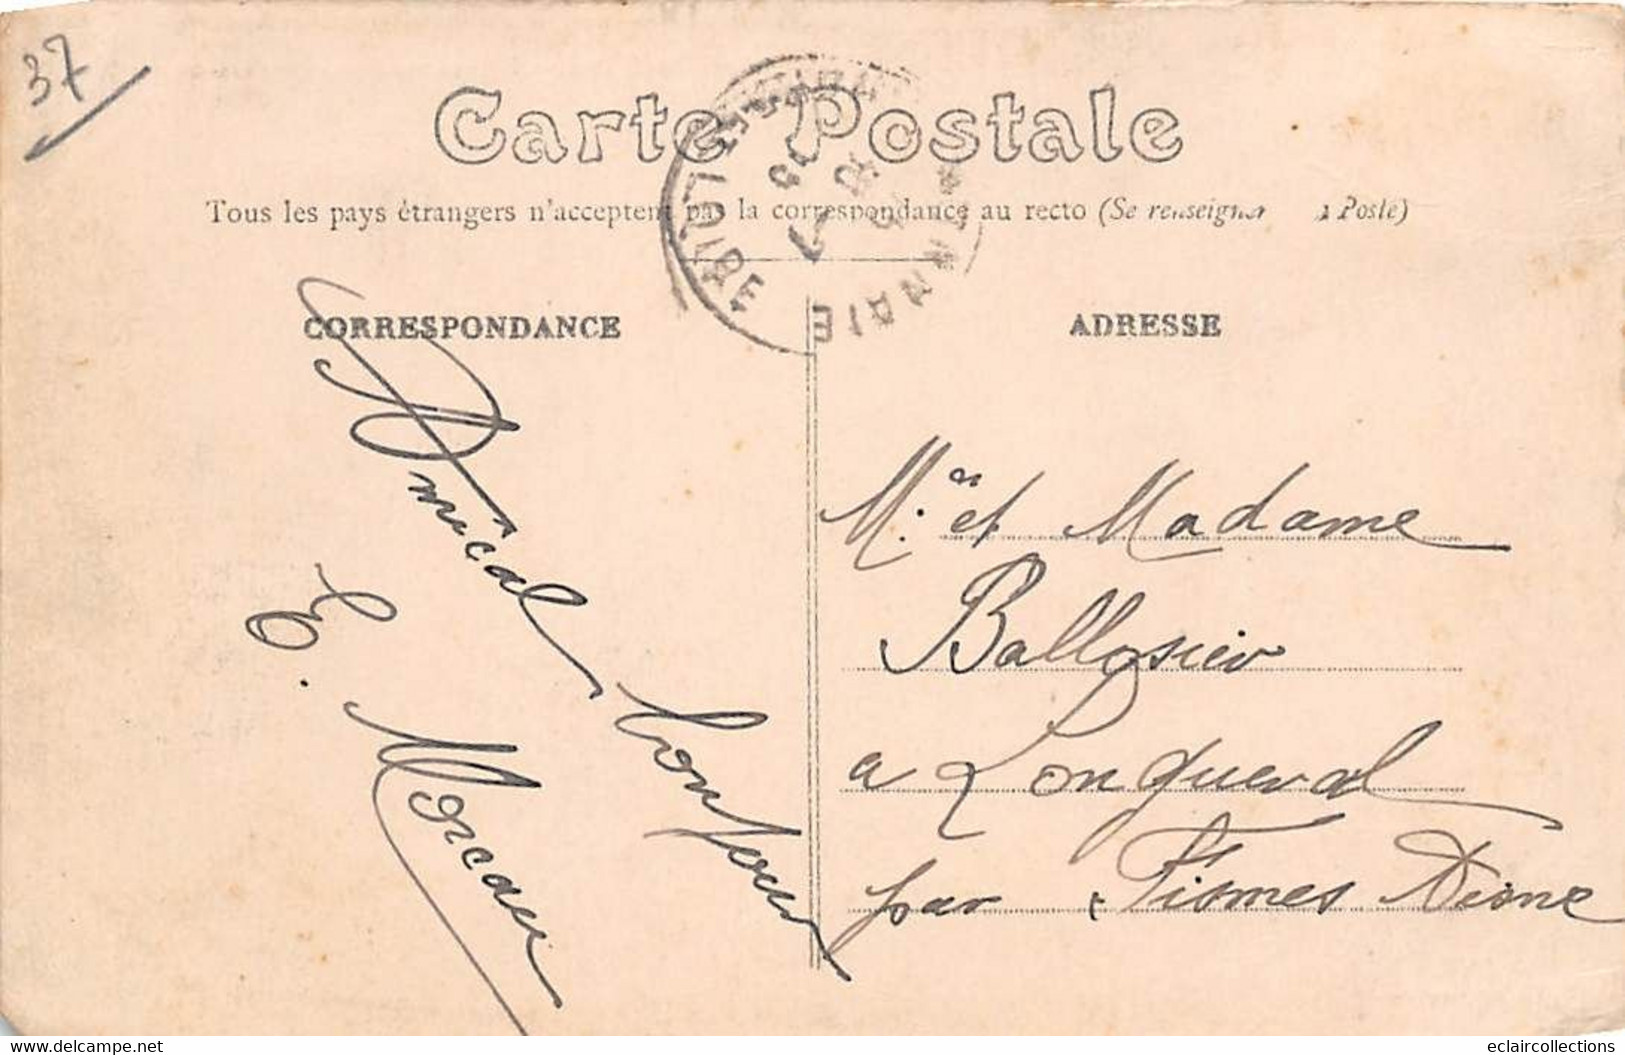 37
Carte Postale
Tous les pays étrangers n'acceptent pas la correspondance au recto (Se renseigner à Poste)
CORRESPONDANCE
ADRESSE
Amical bonjour
E. Moreau
Mr. et Madame
Ballosier
a Longueval
par Fismes Aisne
delcampe.net
eclaircollections